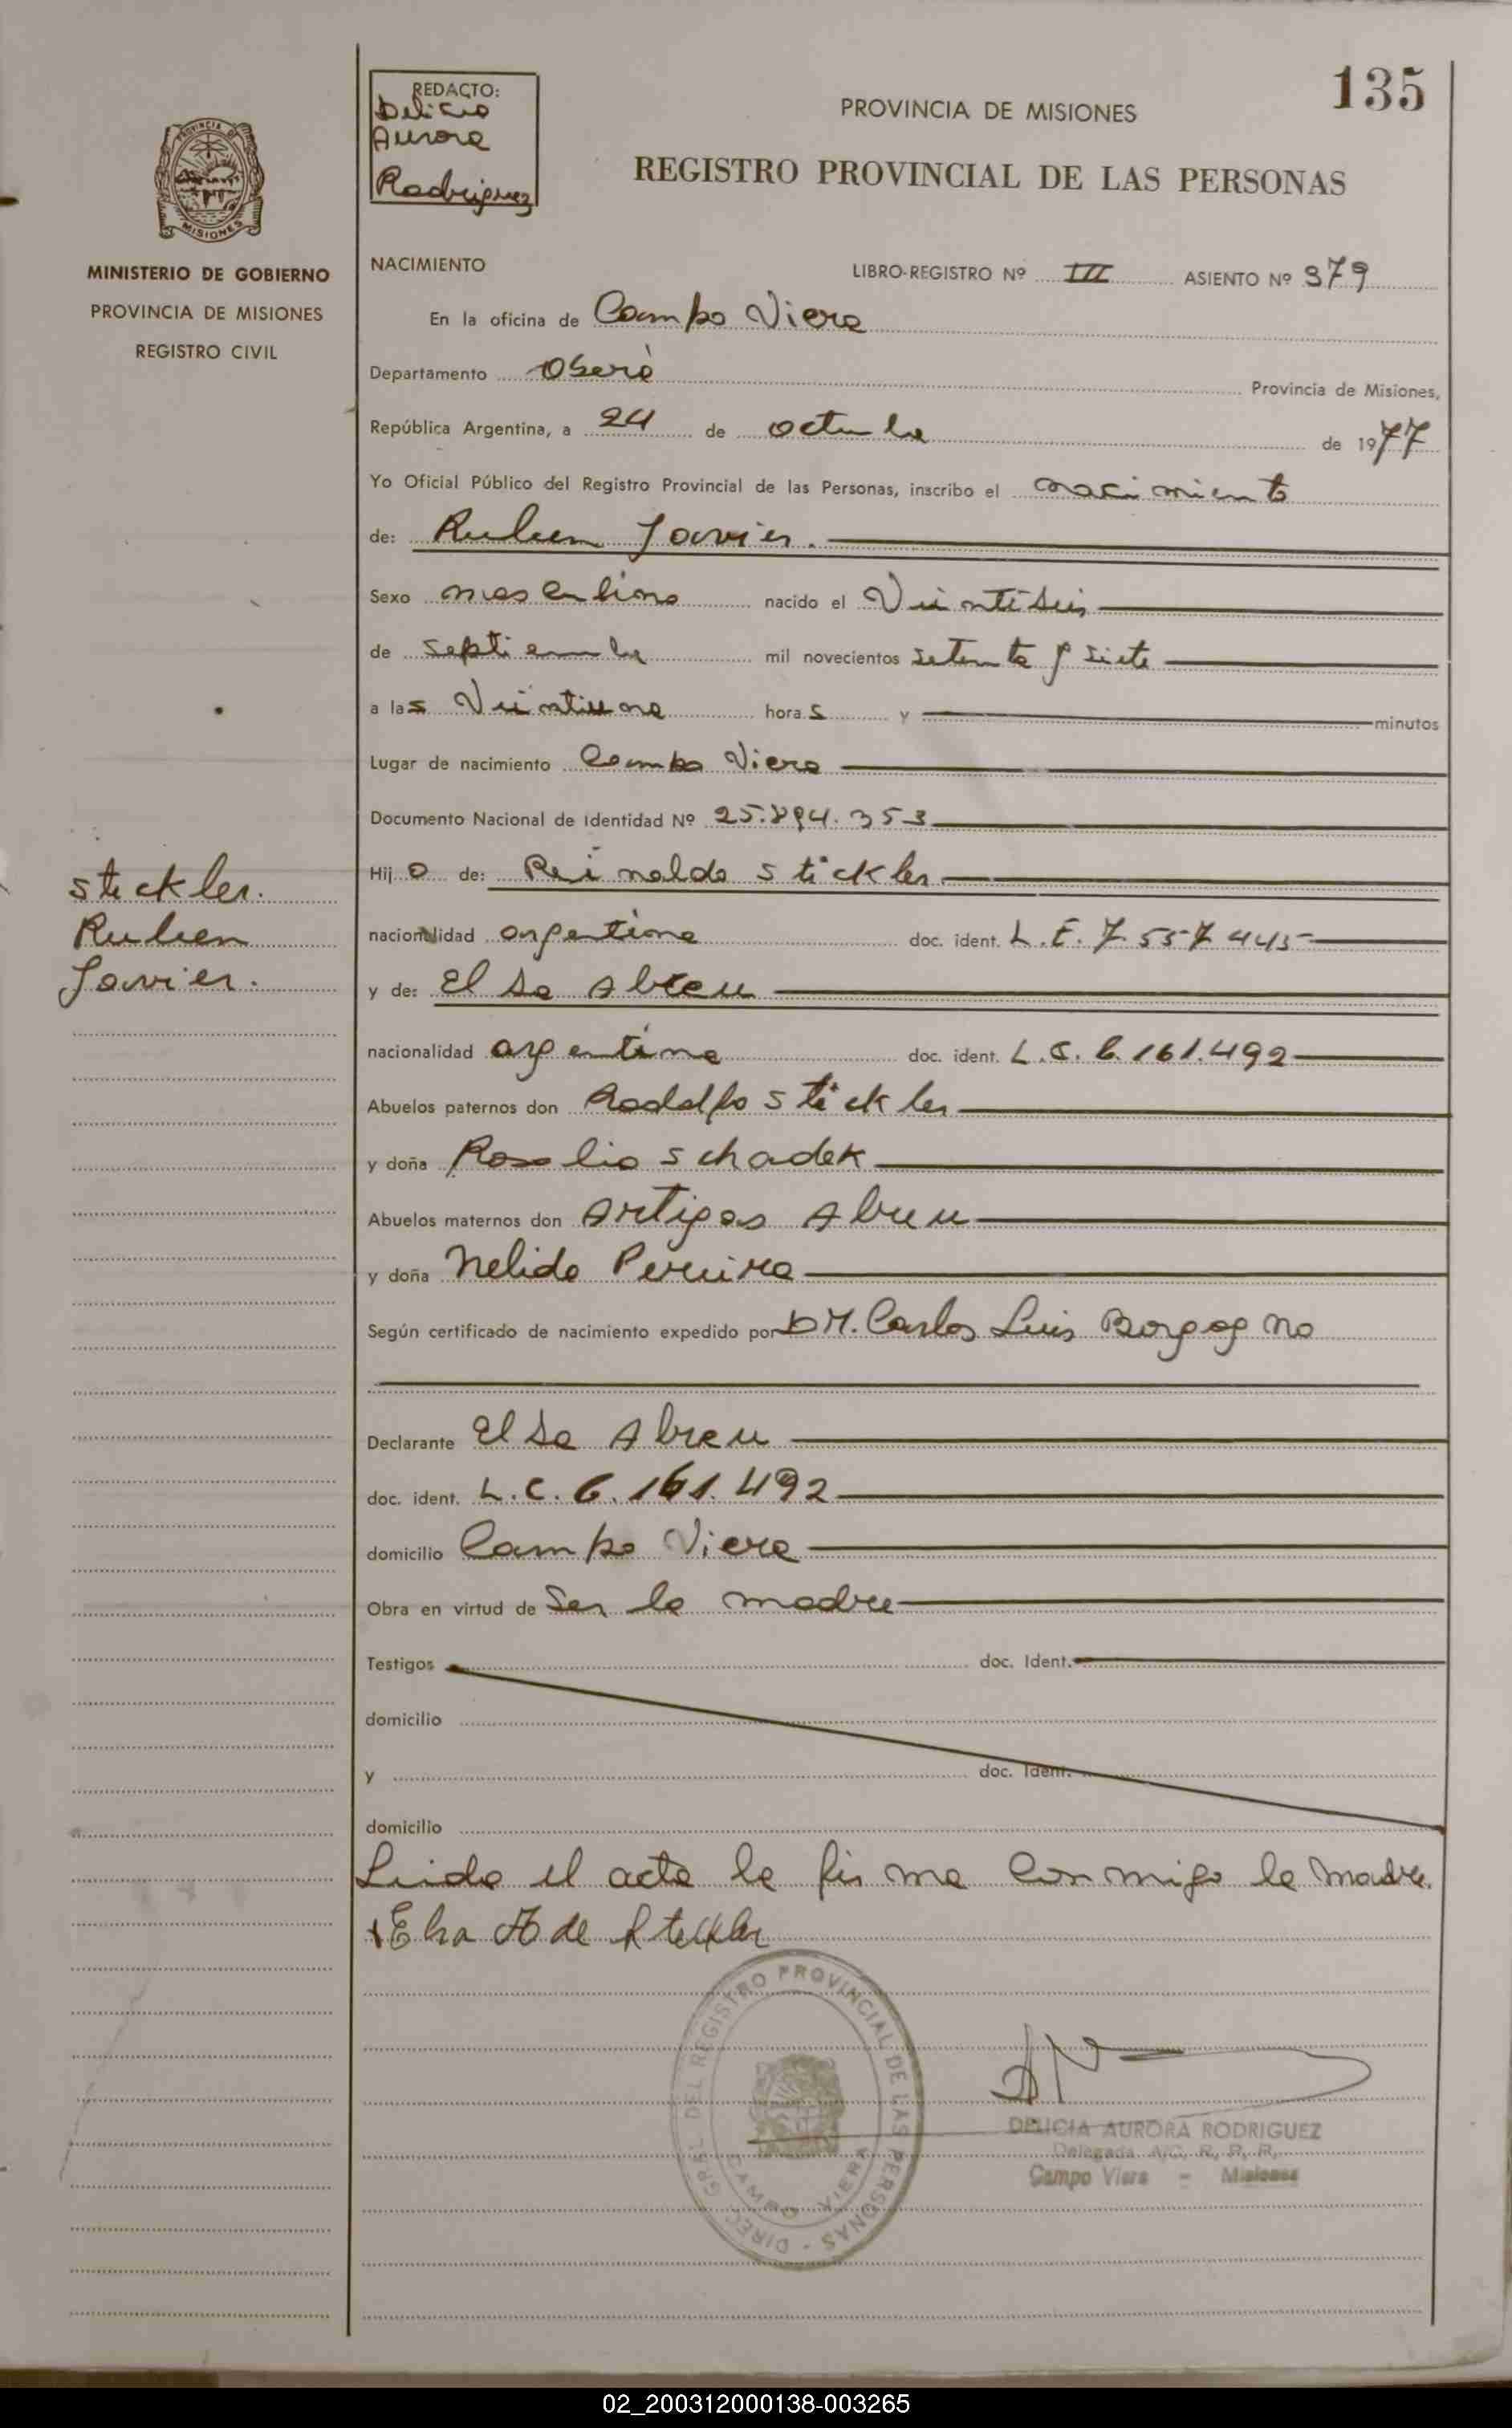 135
REDACTO:
Delicia
Aurora
Rodriguez
PROVINCIA DE MISIONES
REGISTRO PROVINCIAL DE LAS PERSONAS
PROVINCIA DE MISIONES
MINISTERIO DE GOBIERNO
PROVINCIA DE MISIONES
REGISTRO CIVIL
NACIMIENTO LIBRO-REGISTRO Nº III ASIENTO Nº 379
En la oficina de Campo Viera
Departamento Oberá Provincia de Misiones,
República Argentina, a 24 de octubre de 1977
Yo Oficial Público del Registro Provincial de las Personas, inscribo el nacimiento
de: Ruben Javier.
Sexo masculino nacido el Veintiseis
de septiembre mil novecientos setenta y siete
a las Veintiuna horas y minutos
Lugar de nacimiento Campo Viera
Documento Nacional de Identidad Nº 25.894.353
Hijo de: Reinaldo Stickler
nacionalidad argentina doc. ident. L.E. 7.557.445
y de: Elsa Abreu
nacionalidad argentina doc. ident. L.C. 6.161.492
Abuelos paternos don Rodolfo Stickler
y doña Rosalia Schadek
Abuelos maternos don Artigas Abreu
y doña Nelida Pereira
Según certificado de nacimiento expedido por DR. Carlos Luis Borgogno
Declarante Elsa Abreu
doc. ident. L.C. 6.161.492
domicilio Campo Viera
Obra en virtud de Ser la madre
Testigos doc. Ident.
domicilio
y doc. Ident.
domicilio
Leida el acta la firma conmigo la madre.
Elsa A de Stickler
Stickler.
Ruben
Javier.
DIREC. GRAL. DEL REGISTRO PROVINCIAL DE LAS PERSONAS -
CAMPO VIERA
DELICIA AURORA RODRIGUEZ
Delegada A/C. R. P. R.
Campo Viera - Misiones
02_200312000138-003265